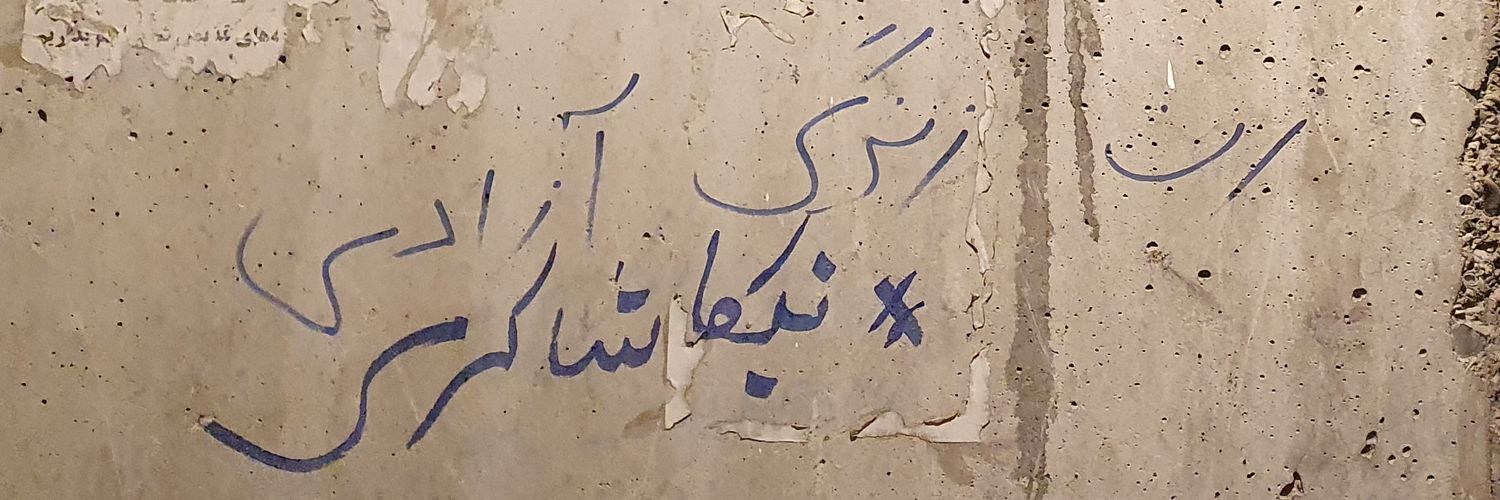 زن زندگی آزادی
* نیکا شاکرمی